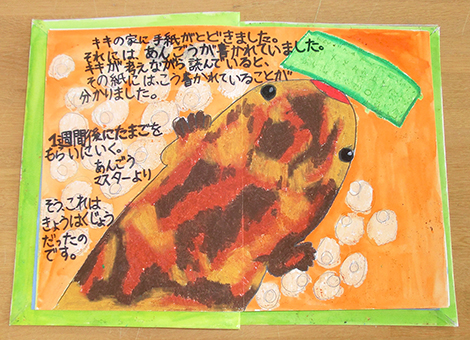 キキの家に手紙がとどきました。
それには、あんごうが書かれていました。
キキが考えながら読んでいると、
その紙には、こう書かれていることが
分かりました。
1週間後にたまごを
もらいにいく。
あんごう
マスターより
そう、これは
きょうはくじょう
だったの
です。